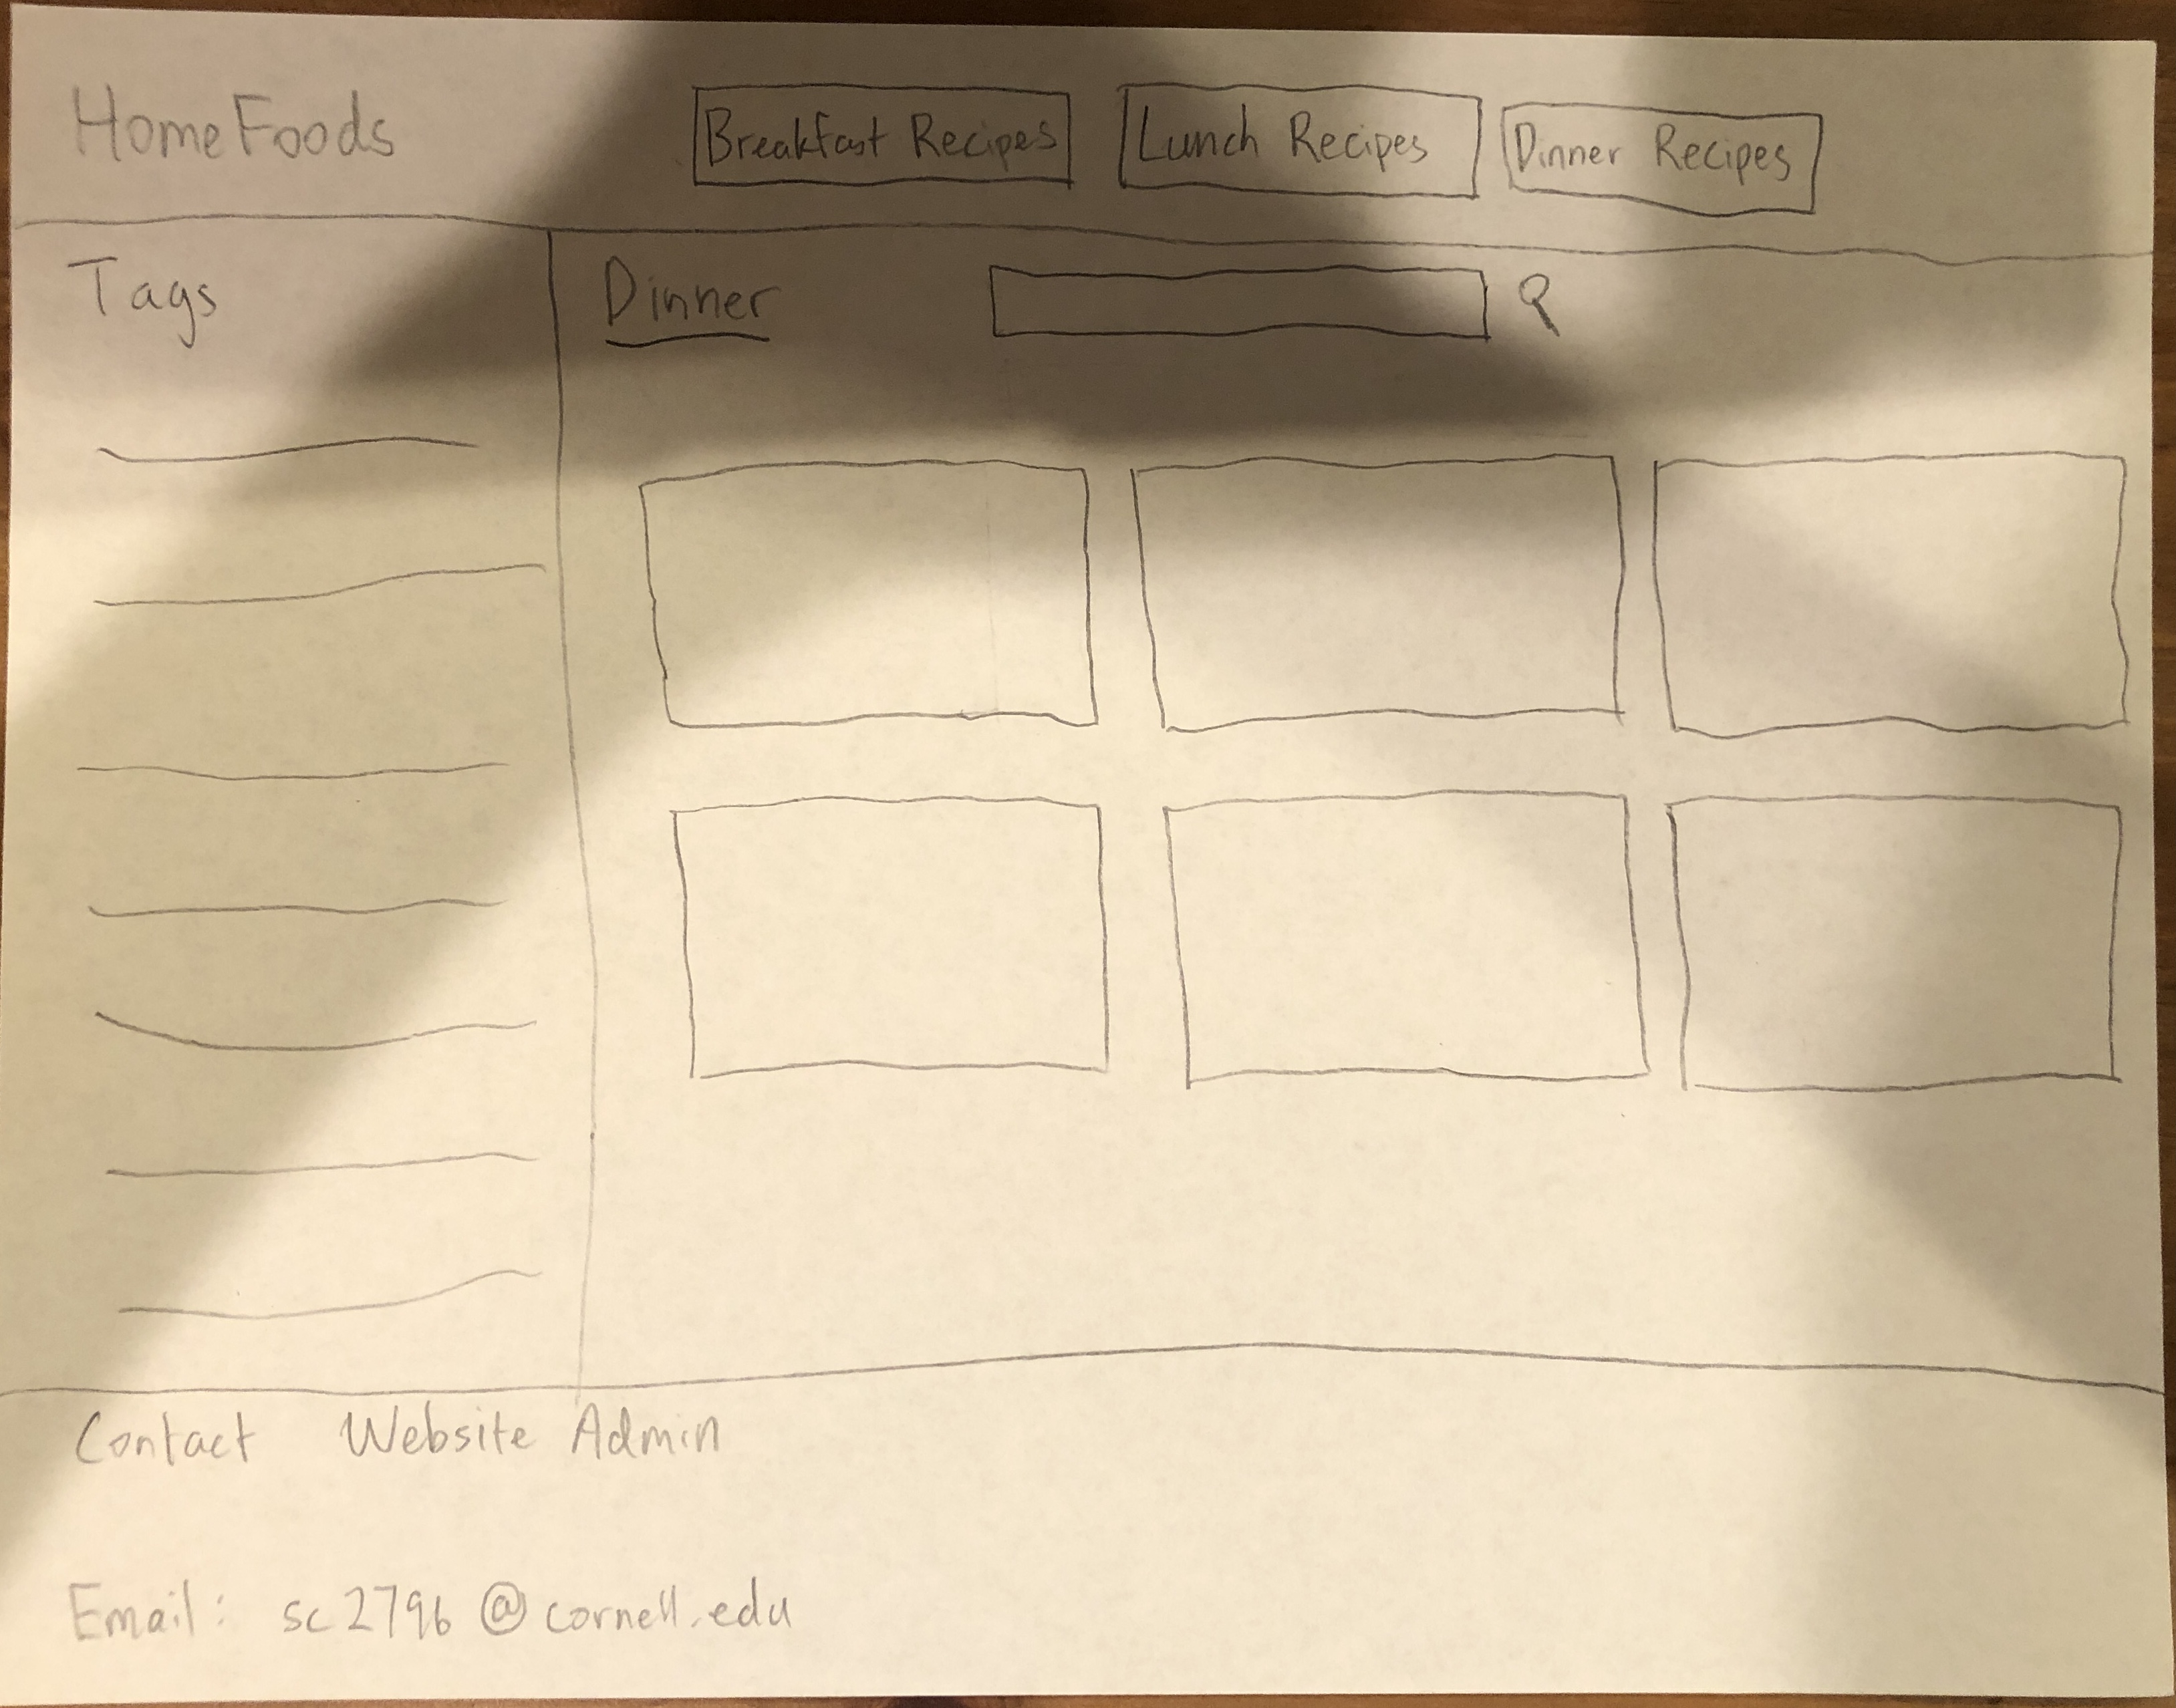 HomeFoods
Breakfast Recipes
Lunch Recipes
Dinner Recipes
Tags
Dinner
Contact Website Admin
Email: sc2796@cornell.edu